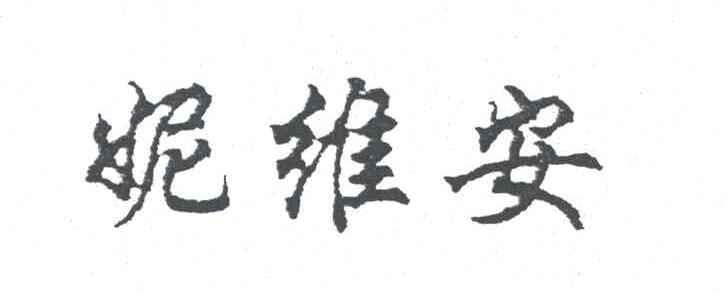 妮维安